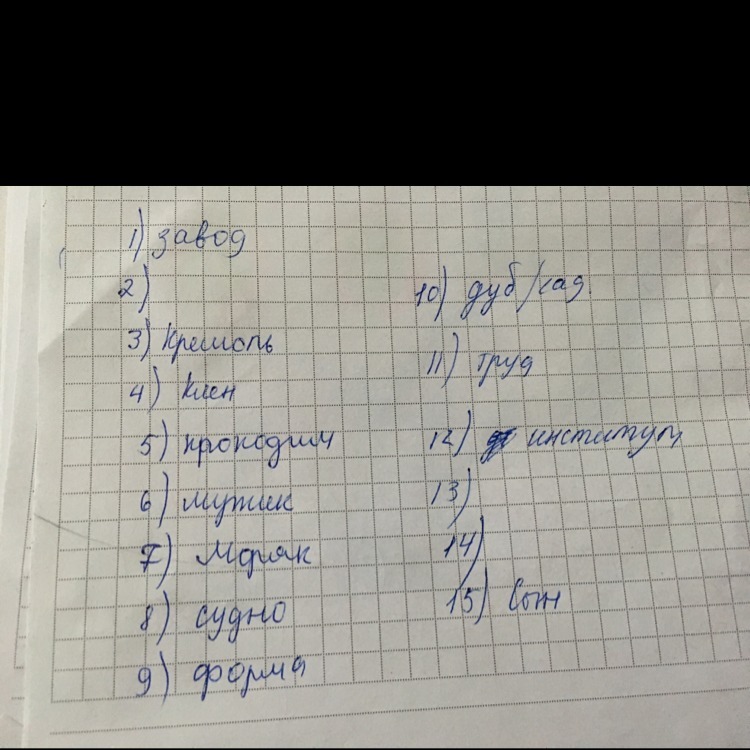 1) завод
2)
3) Кремль
4) клен
5) крокодил
6) мужик
7) Моряк
8) судно
9) форма
10) дуб/сад.
11) труд
12) институт
13)
14)
15) Сын